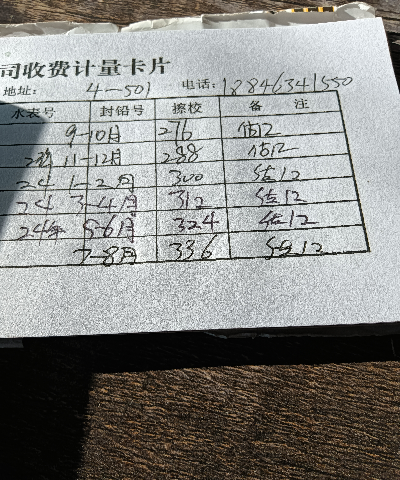 司收费计量卡片
地址: 4-501 电话: 18846341550
水表号 封铅号 擦校 备 注
9-10月 276 估12
11-12月 288 估12
24 1-2月 300 估12
24 3-4月 312 估12
24年 5-6月 324 估12
7-8月 336 估12